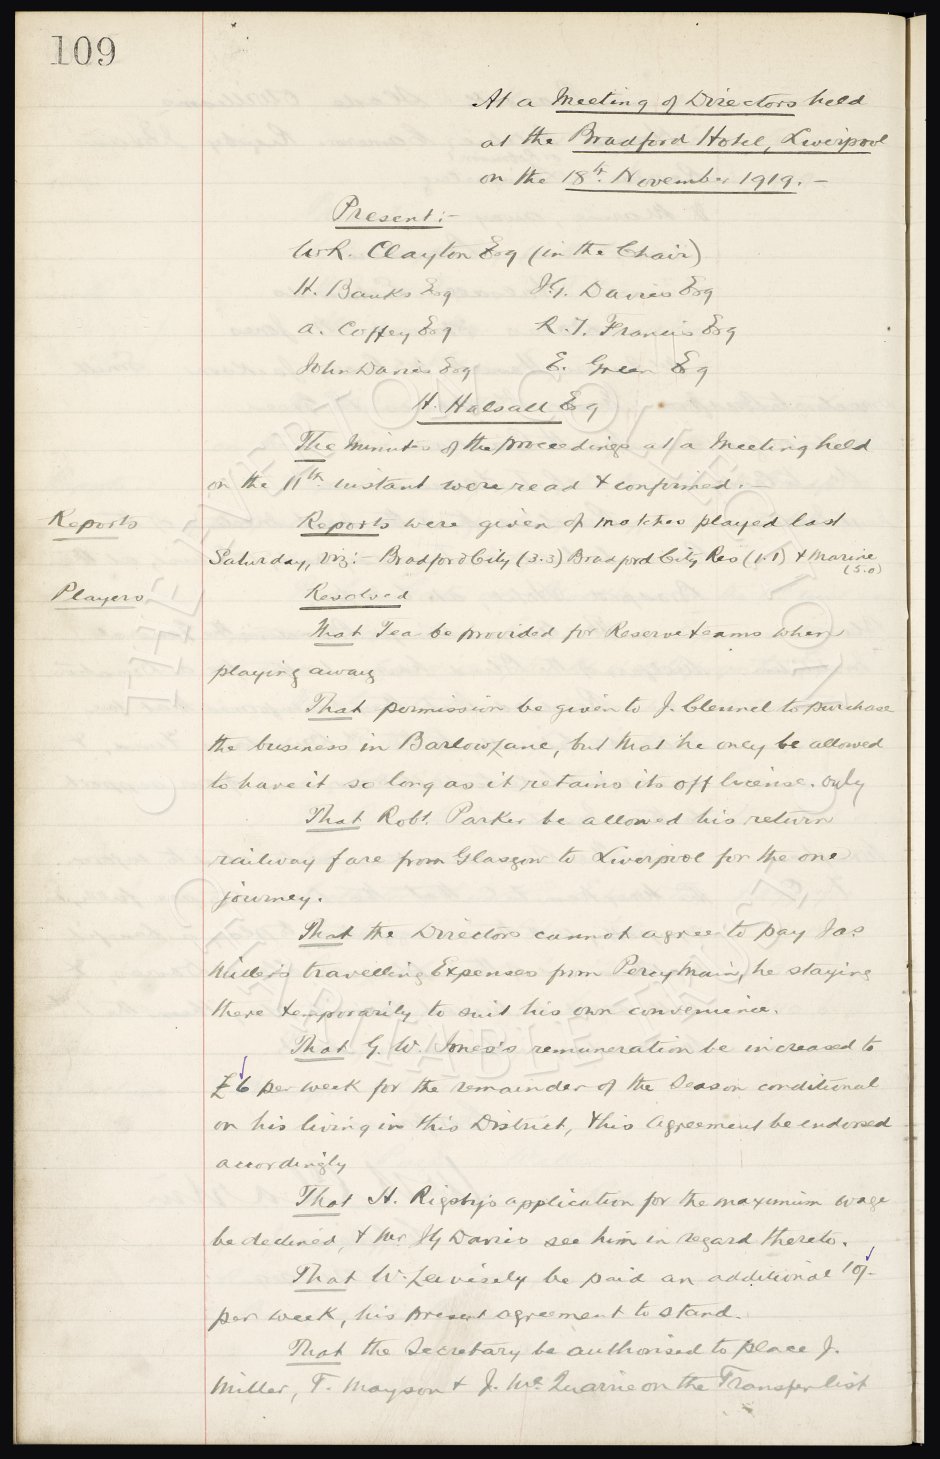 109
At a Meeting of Directors held
at the Bradford Hotel, Liverpool
on the 18th November 1919. –
Present:-
W.R. Clayton Esq (in the Chair)
H. Banks Esq J.G. Davies Esq
A. Coffey Esq R.T. Francis Esq
John Davies Esq E. Green Esq
H. Halsall Esq
The Minutes of the proceedings at a Meeting held
on the 11th instant were read & confirmed. –
Reports Reports were given of matches played last
Saturday, viz:- Bradford City (3.3) Bradford City Res (1.1) & Marine
(5.0)
Players Resolved
That Tea be provided for Reserve teams when
playing away
That permission be given to J. Clennel to purchase
the business in Barlow Lane, but that he only be allowed
to have it so long as it retains its off license. only
That Robt. Parker be allowed his return
railway fare from Glasgow to Liverpool for the one
journey.
That the Directors cannot agree to pay Jas
Miller's travelling Expenses from Percy Main, he staying
there temporarily to suit his own convenience.
That G. W. Jones's remuneration be increased to
£6 per week for the remainder of the Season conditional
on his living in this District, & his Agreement be endorsed
accordingly
That H. Rigsby's application for the maximum wage
be declined, & Mr JG Davies see him in regard thereto.
That W. Leivesely be paid an additional 10/-
per week, his present agreement to stand.
That the Secretary be authorised to place J.
Miller, T. Mayson & J. Mc. Quarrie on the Transfer list